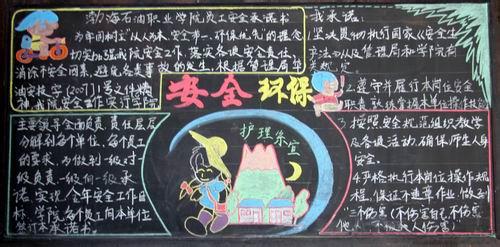 渤海石油职业学院员工安全承诺书
为牢固树立"以人为本,安全第一,环保优先"的理念
切实加强我院安全工作,落实各级安全责任,
消除不安全因素,避免各类事故的发生,根据管理局华
油安技字[2007]1号文件精
神,我院安全工作实行学院
主要领导全面负责,责任层层
分解到各个单位,每个员工
的要求,为做到一级对一
级负责,一级向一级承
诺,实现全年安全工作目
标,学院各个员工向本单位
签订本承诺书。
安全环保
护理系宣
我承诺:
1.坚决贯彻执行国家《安全生
产法》以及管理局和学院有关
2.遵守并履行本岗位安全
职责,熟练掌握本单位操作技能
3.按照安全规范组织教学
及各项活动,确保师生人身
安全。
4.严格执行本岗位操作规
程,保证不违章作业,做到
"三不伤害"(不伤害自己、不伤害
他人、不被他人伤害)